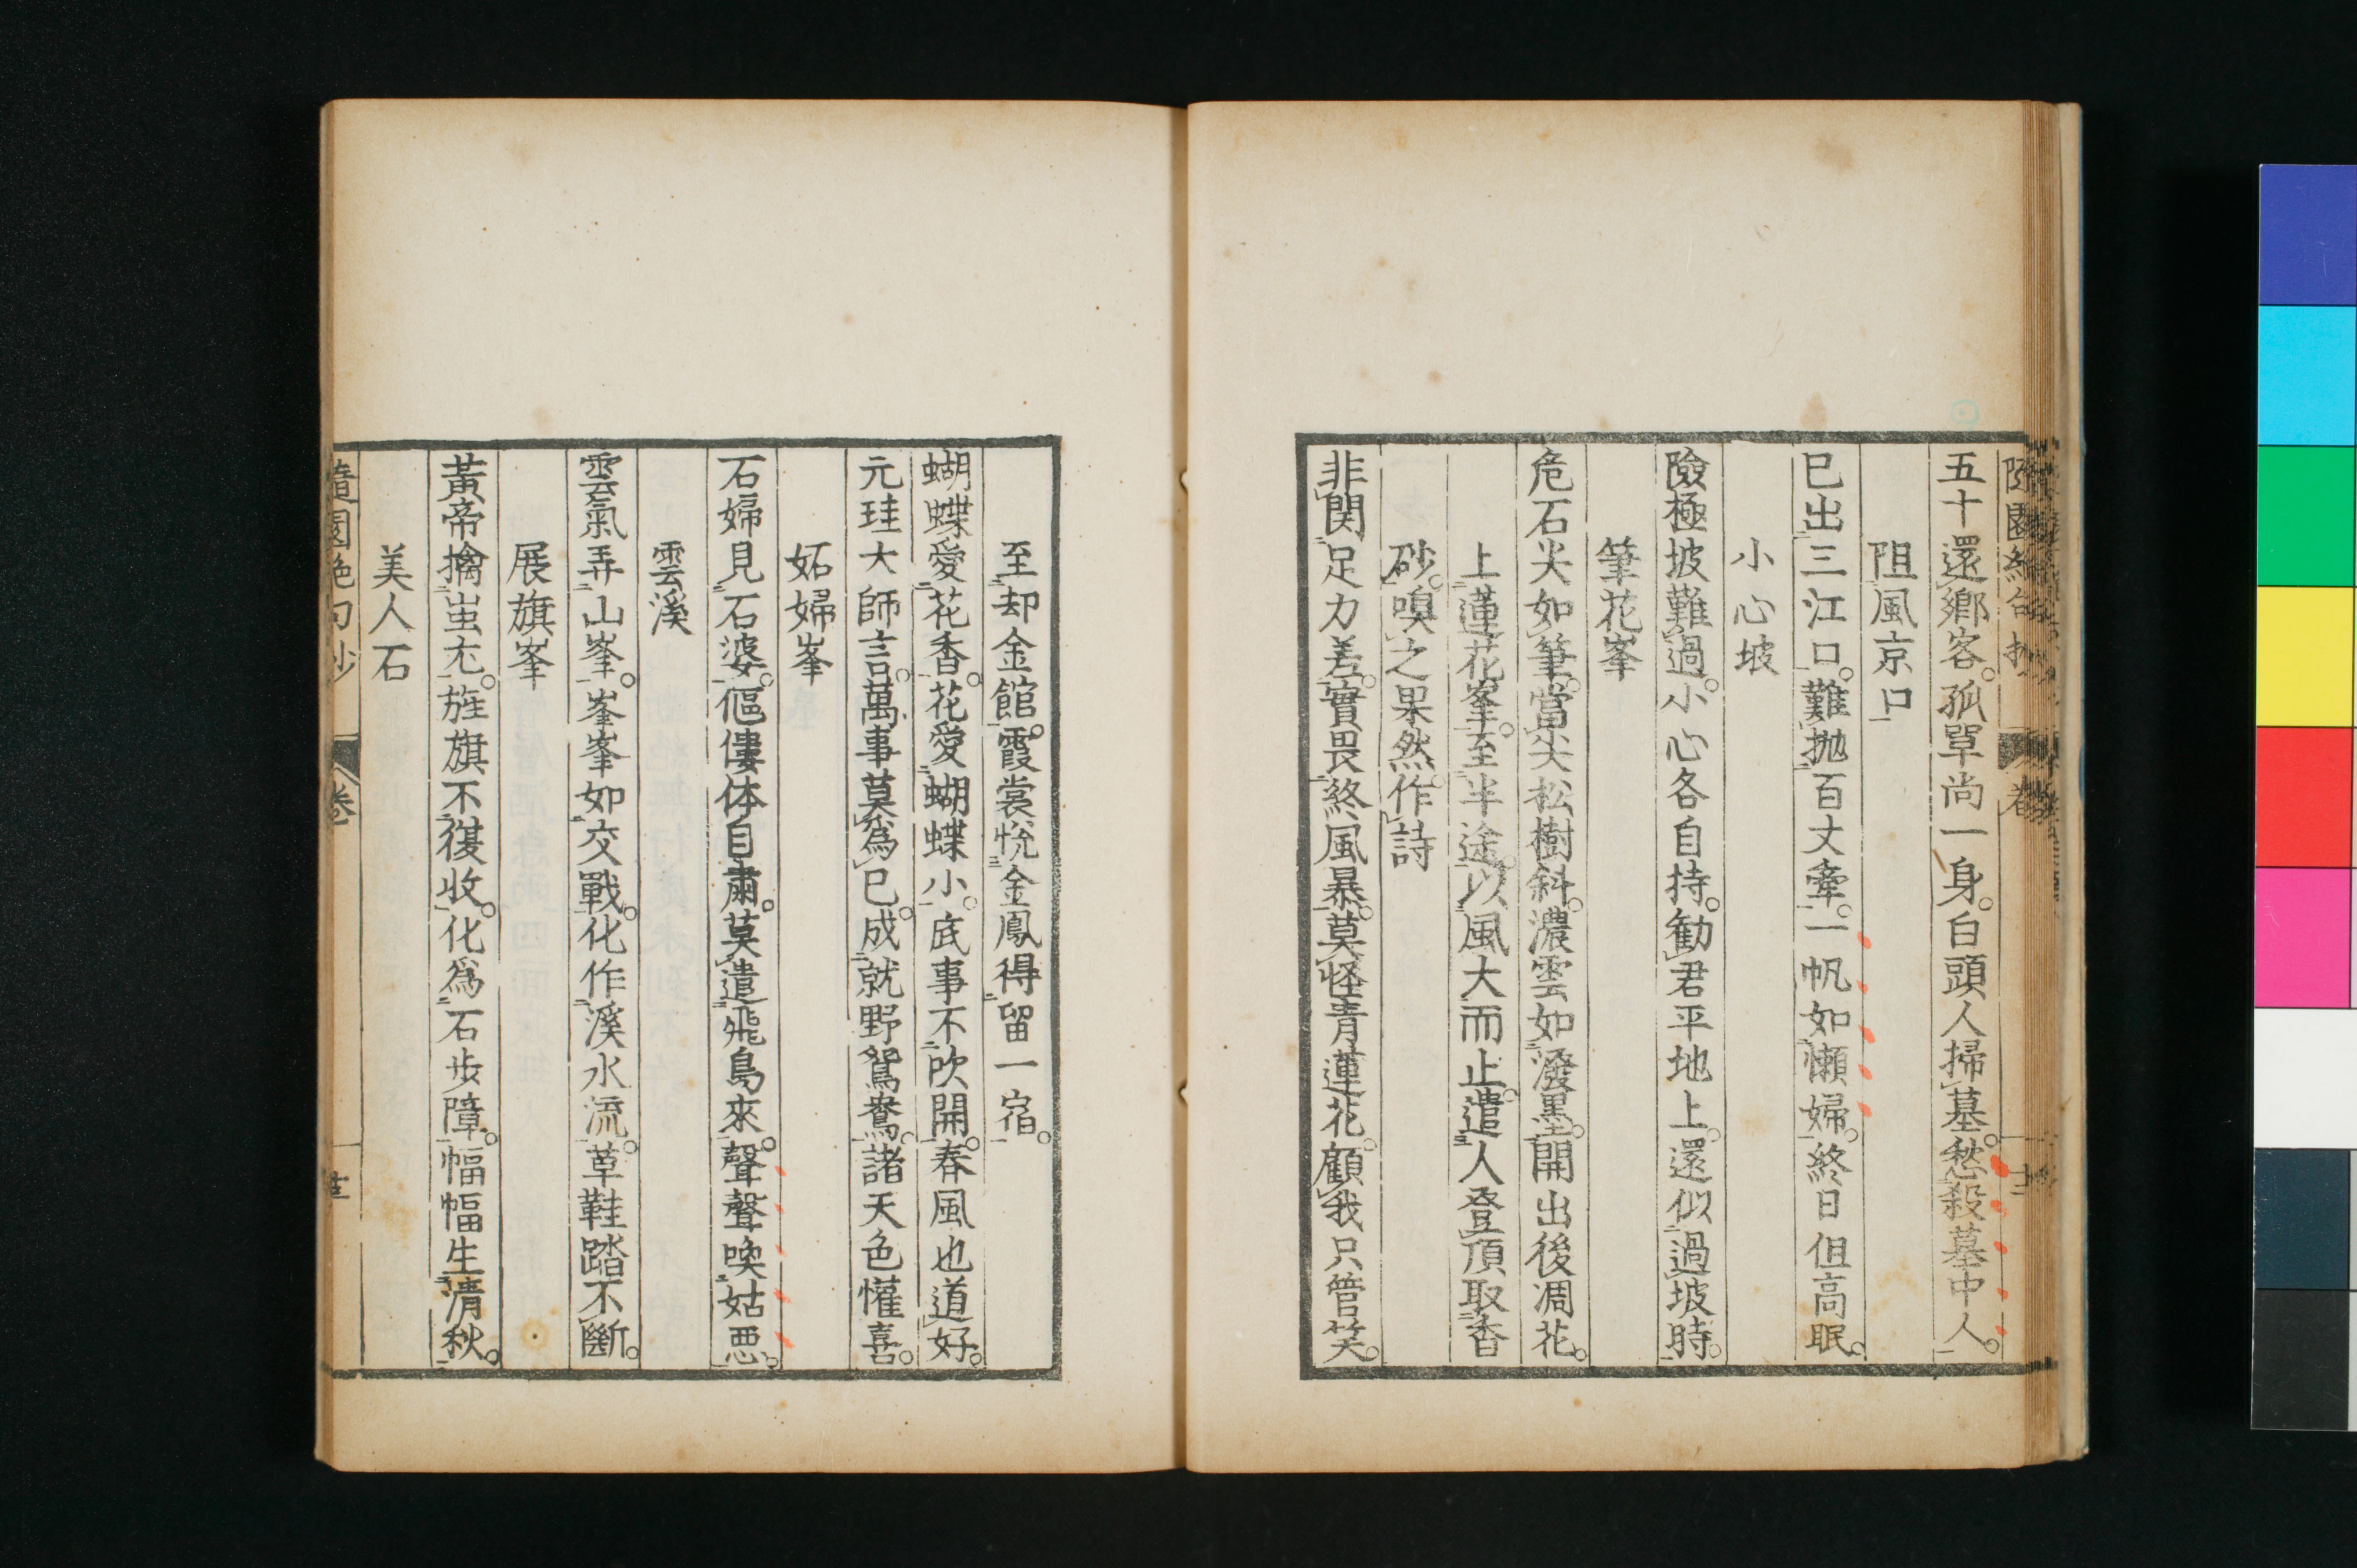 五十還郷客。孤單尚一身。白頭人掃墓。愁殺墓中人。
阻風京口
已出三江口。難抛百丈牽。一帆如懶婦。終日但高眠。
小心坡
險極坡難過。小心各自持。勸君平地上。還似過坡時。
筆花峯
危石尖如筆。當尖松樹斜。濃雲如潑墨。開出後凋花。
上蓮花峯。至半途。以風大而止。遣人登頂取香
砂。嗅之果然。作詩
非関足力差。實畏終風暴。莫怪青蓮花。顧我只管笑。
至却金館。霞裳悦金鳳得留一宿。
蝴蝶愛花香。花愛蝴蝶小。底事不吹開。春風也道好。
元珪大師言。萬事莫爲已。成就野鴛鴦。諸天色懽喜。
妬婦峯
石婦見石婆。傴僂体自肅。莫遣飛鳥來。聲聲喚姑悪。
雲溪
雲氣弄山峯。峯峯如交戰。化作溪水流。草鞋踏不斷。
展旗峯
黃帝擒蚩尤。旌旗不復收。化爲石步障。幅幅生清秋。
美人石
隨園絶句抄
卷